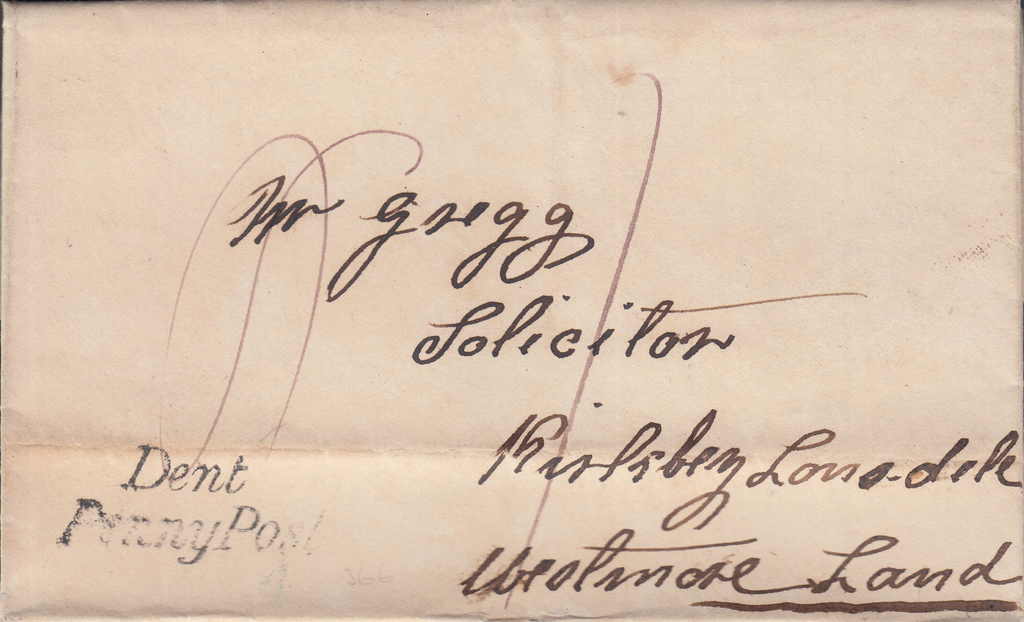 Mr Gregg
Solicitor
Kirksbey Lonsdele
Westmore Land
Dent
Penny Post
366